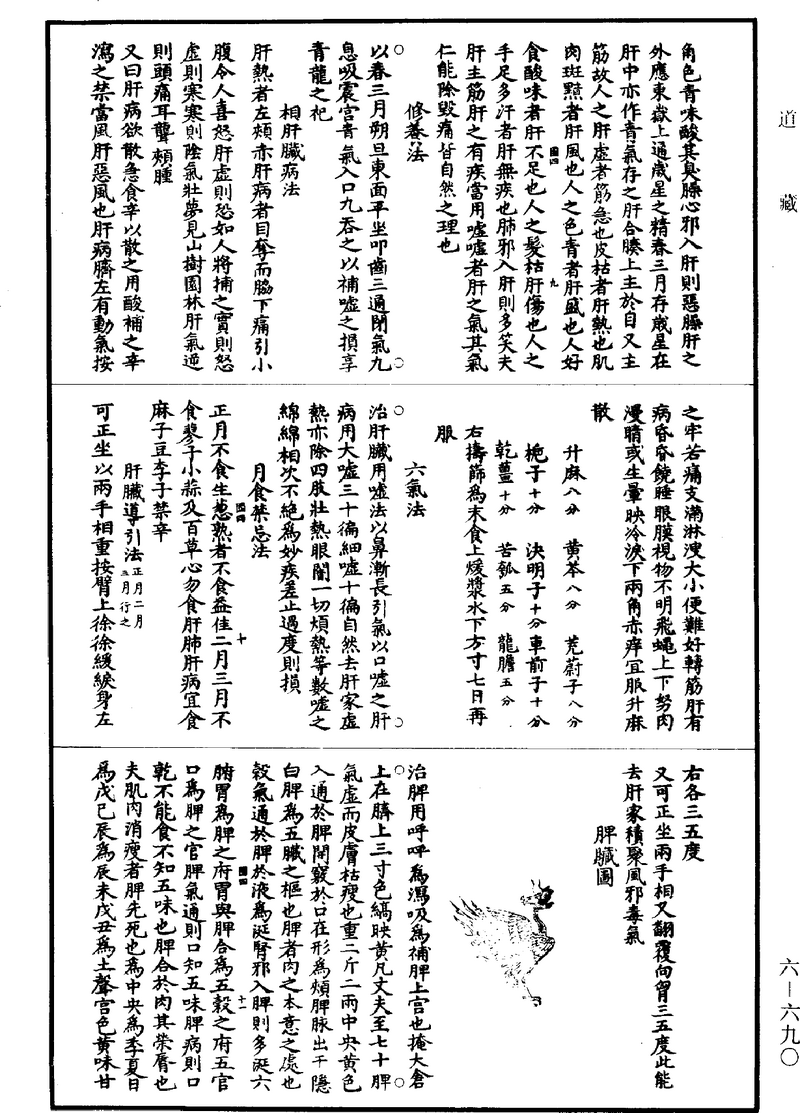 道藏
六—六九〇
角色青味酸其臭臊心邪入肝則惡臊肝之
外應東嶽上通歲星之精春三月存歲星在
肝中亦作青氣存之肝合腠上主於目又主
筋故人之肝虛者筋急也皮枯者肝熱也肌
肉斑點者肝風也人之色青者肝盛也人好
食酸味者肝不足也人之髮枯肝傷也人之
手足多汗者肝無疾也肺邪入肝則多笑夫
肝主筋肝之有疾當用噓噓者肝之氣其氣
仁能除毀痛皆自然之理也
修養法
以春三月朔旦東面平坐叩齒三通閉氣九
息吸震宮青氣入口九吞之以補噓之損享
青龍之祀
相肝臟病法
肝熱者左頰赤肝病者目奪而脇下痛引小
腹令人喜怒肝虛則恐如人將捕之實則怒
虛則寒寒則陰氣壯夢見山樹園林肝氣逆
則頭痛耳聾頰腫
又曰肝病欲散急食辛以散之用酸補之辛
瀉之禁當風肝惡風也肝病臍左有動氣按
之牢若痛支滿淋溲大小便難好轉筋肝有
病昏昏饒睡眼膜視物不明飛蠅上下努肉
漫睛或生暈映冷淚下兩角赤痒宜服升麻
散
升麻八分 黃芩八分 茺蔚子八分
梔子十分 決明子十分 車前子十分
乾薑十分 苦瓠五分 龍膽五分
右擣篩為末食上煖漿水下方寸匕日再
服
六氣法
治肝臟用噓法以鼻漸長引氣以口噓之肝
病用大噓三十徧細噓十徧自然去肝家虛
熱亦除四肢壯熱眼闇一切煩熱等數噓之
綿綿相次不絕為妙疾差止過度則損
月食禁忌法
正月不食生葱熟者不食益佳二月三月不
食蓼子小蒜及百草心勿食肝肺肝病宜食
麻子豆李子禁辛
肝臟導引法正月二月三月行之
可正坐以兩手相重按臂上徐徐緩緱身左
右各三五度
又可正坐兩手相叉翻覆向胷三五度此能
去肝家積聚風邪毒氣
脾臟圖
治脾用呼呼為瀉吸為補脾上宮也掩大倉
上在臍上三寸色縞映黃凡丈夫至七十脾
氣虛而皮膚枯瘦也重二斤二兩中央黃色
入通於脾開竅於口在形為頰脾脉出于隱
白脾為五臟之樞也脾者肉之本意之處也
穀氣通於脾於液為涎腎邪入脾則多涎六
腑胃為脾之府胃與脾合為五穀之府五官
口為脾之官脾氣通則口知五味脾病則口
乾不能食不知五味也脾合於肉其榮脣也
夫肌肉消瘦者脾先死也為中央為季夏日
為戊己辰為辰未戊丑為土聲宮色黃味甘